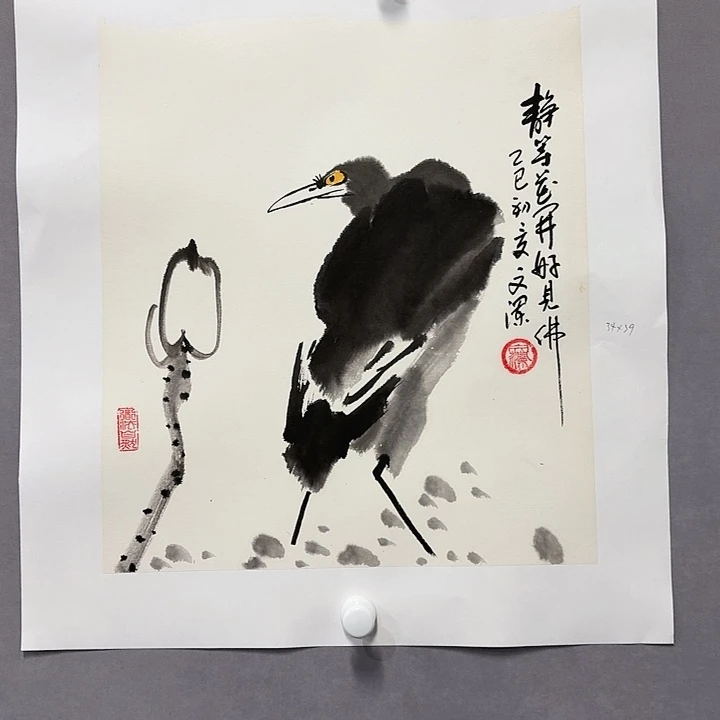 静等花开好见佛
乙巳初夏文深
34×39